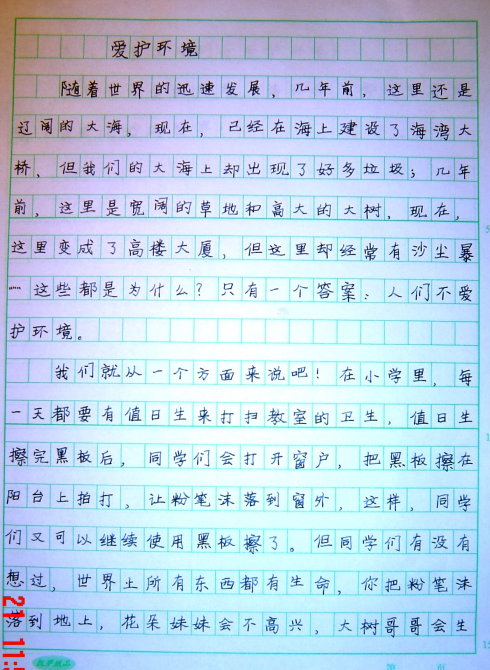 爱护环境
随着世界的迅速发展，几年前，这里还是
辽阔的大海，现在，已经在海上建设了海湾大
桥、但我们的大海上却出现了好多垃圾；几年
前，这里是宽阔的草地和高大的大树，现在，
这里变成了高楼大厦，但这里却经常有沙尘暴
……这些都是为什么？只有一个答案：人们不爱
护环境。
我们就从一个方面来说吧！在小学里，每
一天都要有值日生来打扫教室的卫生，值日生
擦完黑板后，同学们会打开窗户，把黑板擦在
阳台上拍打，让粉笔沫落到窗外，这样，同学
们又可以继续使用黑板擦了。但同学们有没有
想过，世界上所有东西都有生命，你把粉笔沫
落到地上，花朵妹妹会不高兴，大树哥哥会生
5
1
15
第 页